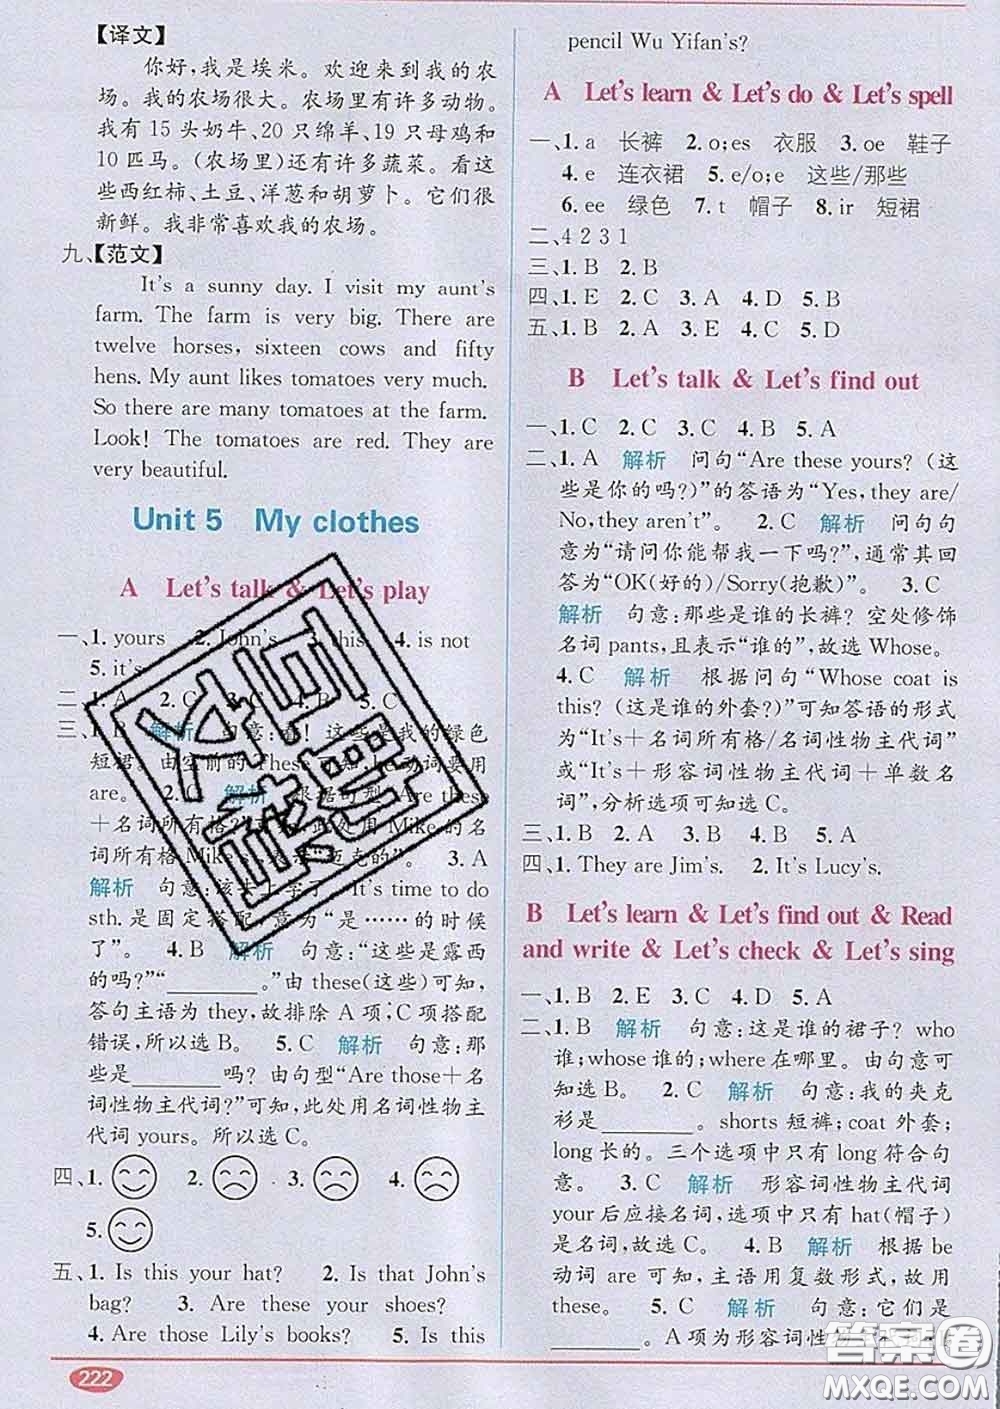 【译文】
你好,我是埃米。欢迎来到我的农
场。我的农场很大。农场里有许多动物。
我有 15 头奶牛、20 只绵羊、19 只母鸡和
10 匹马。(农场里)还有许多蔬菜。看这
些西红柿、土豆、洋葱和胡萝卜。它们很
新鲜。我非常喜欢我的农场。
九、【范文】
It's a sunny day. I visit my aunt's
farm. The farm is very big. There are
twelve horses, sixteen cows and fifty
hens. My aunt likes tomatoes very much.
So there are many tomatoes at the farm.
Look! The tomatoes are red. They are
very beautiful.
Unit 5 My clothes
A Let's talk & Let's play
一、1. yours 2. John's 3. this 4. is not
5. it's
二、1. A 2. C 3. C 4. A 5. C
三、1. B 解析 句意:看!这些是我的绿色
短裙。由空前的 These 可知,be动词要用
are。 2. C 解析 根据句型“Are these
＋名词所有格?”可知,此处用 Mike 的名
词所有格 Mike's,表示“迈克的”。 3. A
解析 句意:该去上学了。It's time to do
sth.是固定搭配,意为“是……的时候
了”。 4. B 解析 句意:“这些是露西
的吗?”“________。”由 these(这些)可知,
答句主语为 they,故排除 A 项;C 项搭配
错误,所以选 B。 5. C 解析 句意:那
些是________吗? 由句型“Are those＋名
词性物主代词?”可知,此处用名词性物主
代词 yours。所以选 C。
四、1. 2. 3. 4.
5.
五、1. Is this your hat? 2. Is that John's
bag? 3. Are these your shoes?
4. Are those Lily's books? 5. Is this
222
pencil Wu Yifan's?
A Let's learn & Let's do & Let's spell
一、1. a 长裤 2. o;es 衣服 3. oe 鞋子
4. e 连衣裙 5. e/o;e 这些/那些
6. ee 绿色 7. t 帽子 8. ir 短裙
二、4 2 3 1
三、1. B 2. B
四、1. E 2. C 3. A 4. D 5. B
五、1. B 2. A 3. E 4. C 5. D
B Let's talk & Let's find out
一、1. C 2. C 3. C 4. B 5. A
二、1. A 解析 问句“Are these yours?(这
些是你的吗?)”的答语为“Yes, they are/
No, they aren't”。 2. C 解析 问句句
意为“请问你能帮我一下吗?”,通常其回
答为“OK(好的)/Sorry(抱歉)”。 3. C
解析 句意:那些是谁的长裤? 空处修饰
名词 pants,且表示“谁的”,故选 Whose。
4. C 解析 根据问句“Whose coat is
this?(这是谁的外套?)”可知答语的形式
为“It's＋名词所有格/名词性物主代词”
或“It's＋形容词性物主代词＋单数名
词”,分析选项可知选 C。
三、1. B 2. A 3. B 4. B 5. A
四、1. They are Jim's. 2. It's Lucy's.
B Let's learn & Let's find out & Read
and write & Let's check & Let's sing
一、1. B 2. E 3. C 4. D 5. A
二、1. B 解析 句意:这是谁的裙子? who
谁;whose谁的;where在哪里。由句意可
知选 B。 2. C 解析 句意:我的夹克
衫是________。shorts 短裤;coat 外套;
long长的。三个选项中只有long符合句
意。 3. C 解析 形容词性物主代词
your后应接名词,选项中只有 hat(帽子)
是名词,故选 C。 4. B 解析 根据 be
动词 are 可知,主语用复数形式,故用
these。 5. C 解析 句意:它们是
________。A项为形容词性物
答案圈
MXQE.COM